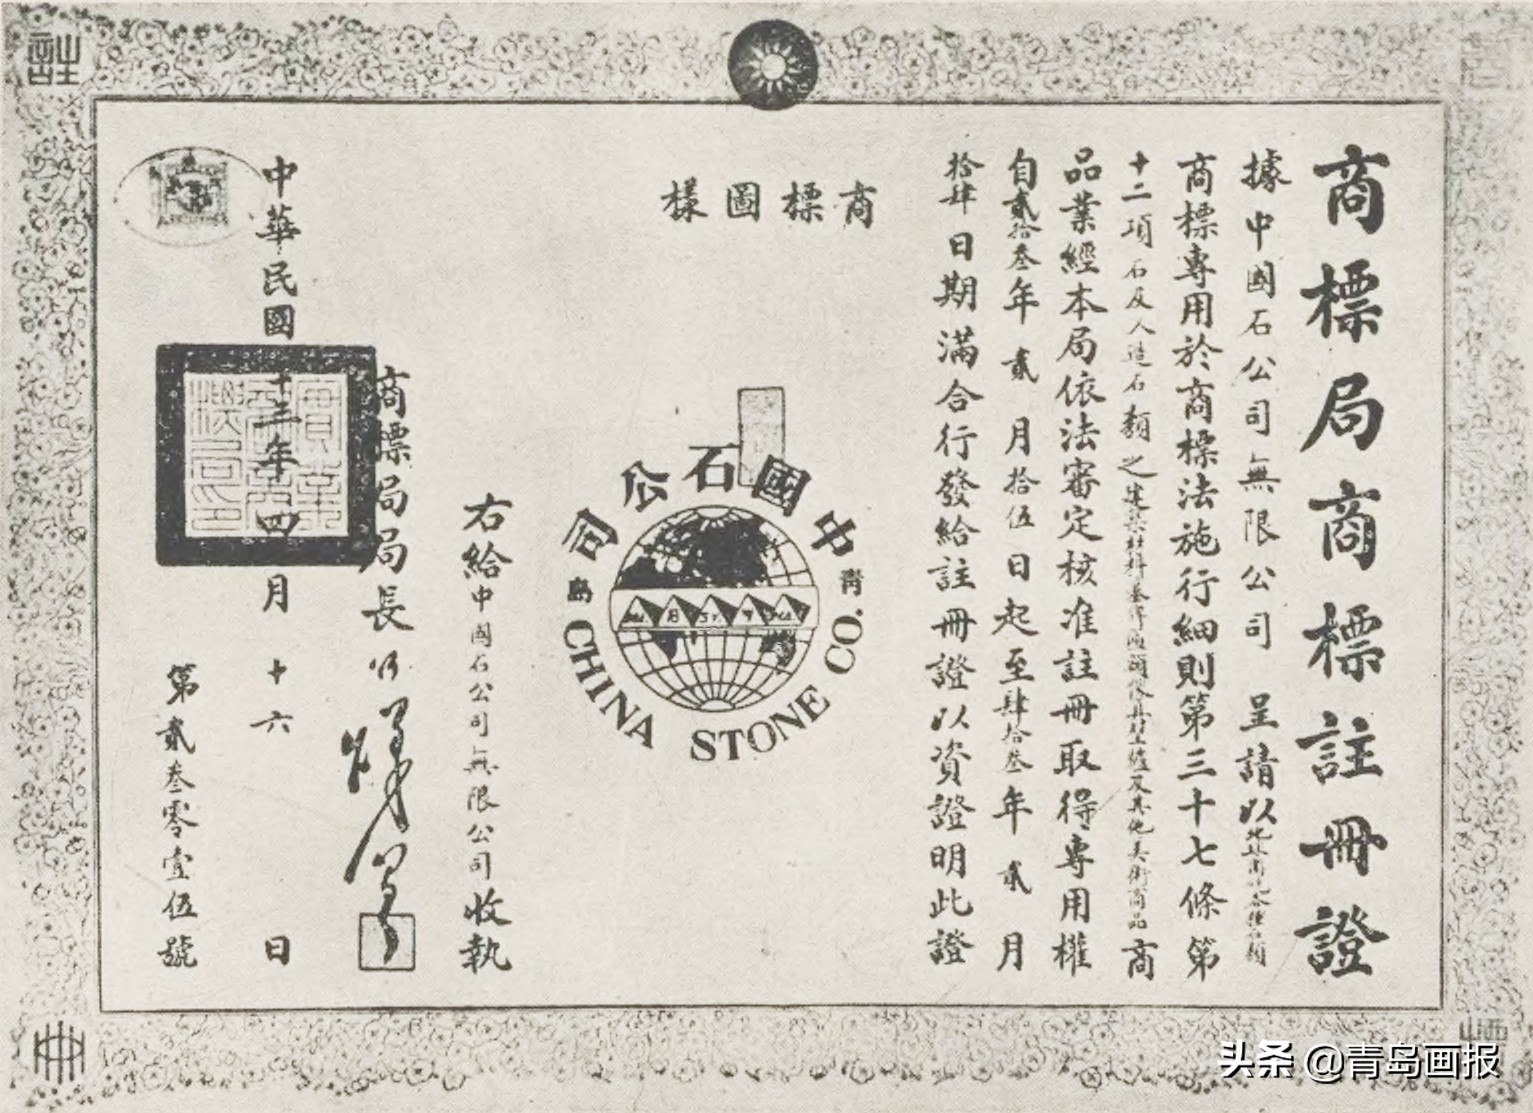 商標局商標註冊證
據中國石公司無限公司 呈請以
商標專用於商標法施行細則第三十七條第
十二項石及人造石類之建築材料墓碑及其他美術商品商
品業經本局依法審定核准註冊取得專用權
自貳拾叁年貳月拾伍日起至肆拾叁年貳月
拾肆日期滿合行發給註冊證以資證明此證
商標圖樣
中國石公司
青島
CHINA STONE CO.
右給中國石公司無限公司收執
商標局局長
中華民國 十三年四月十六日
第貳叁零壹伍號
頭条 @青岛画报